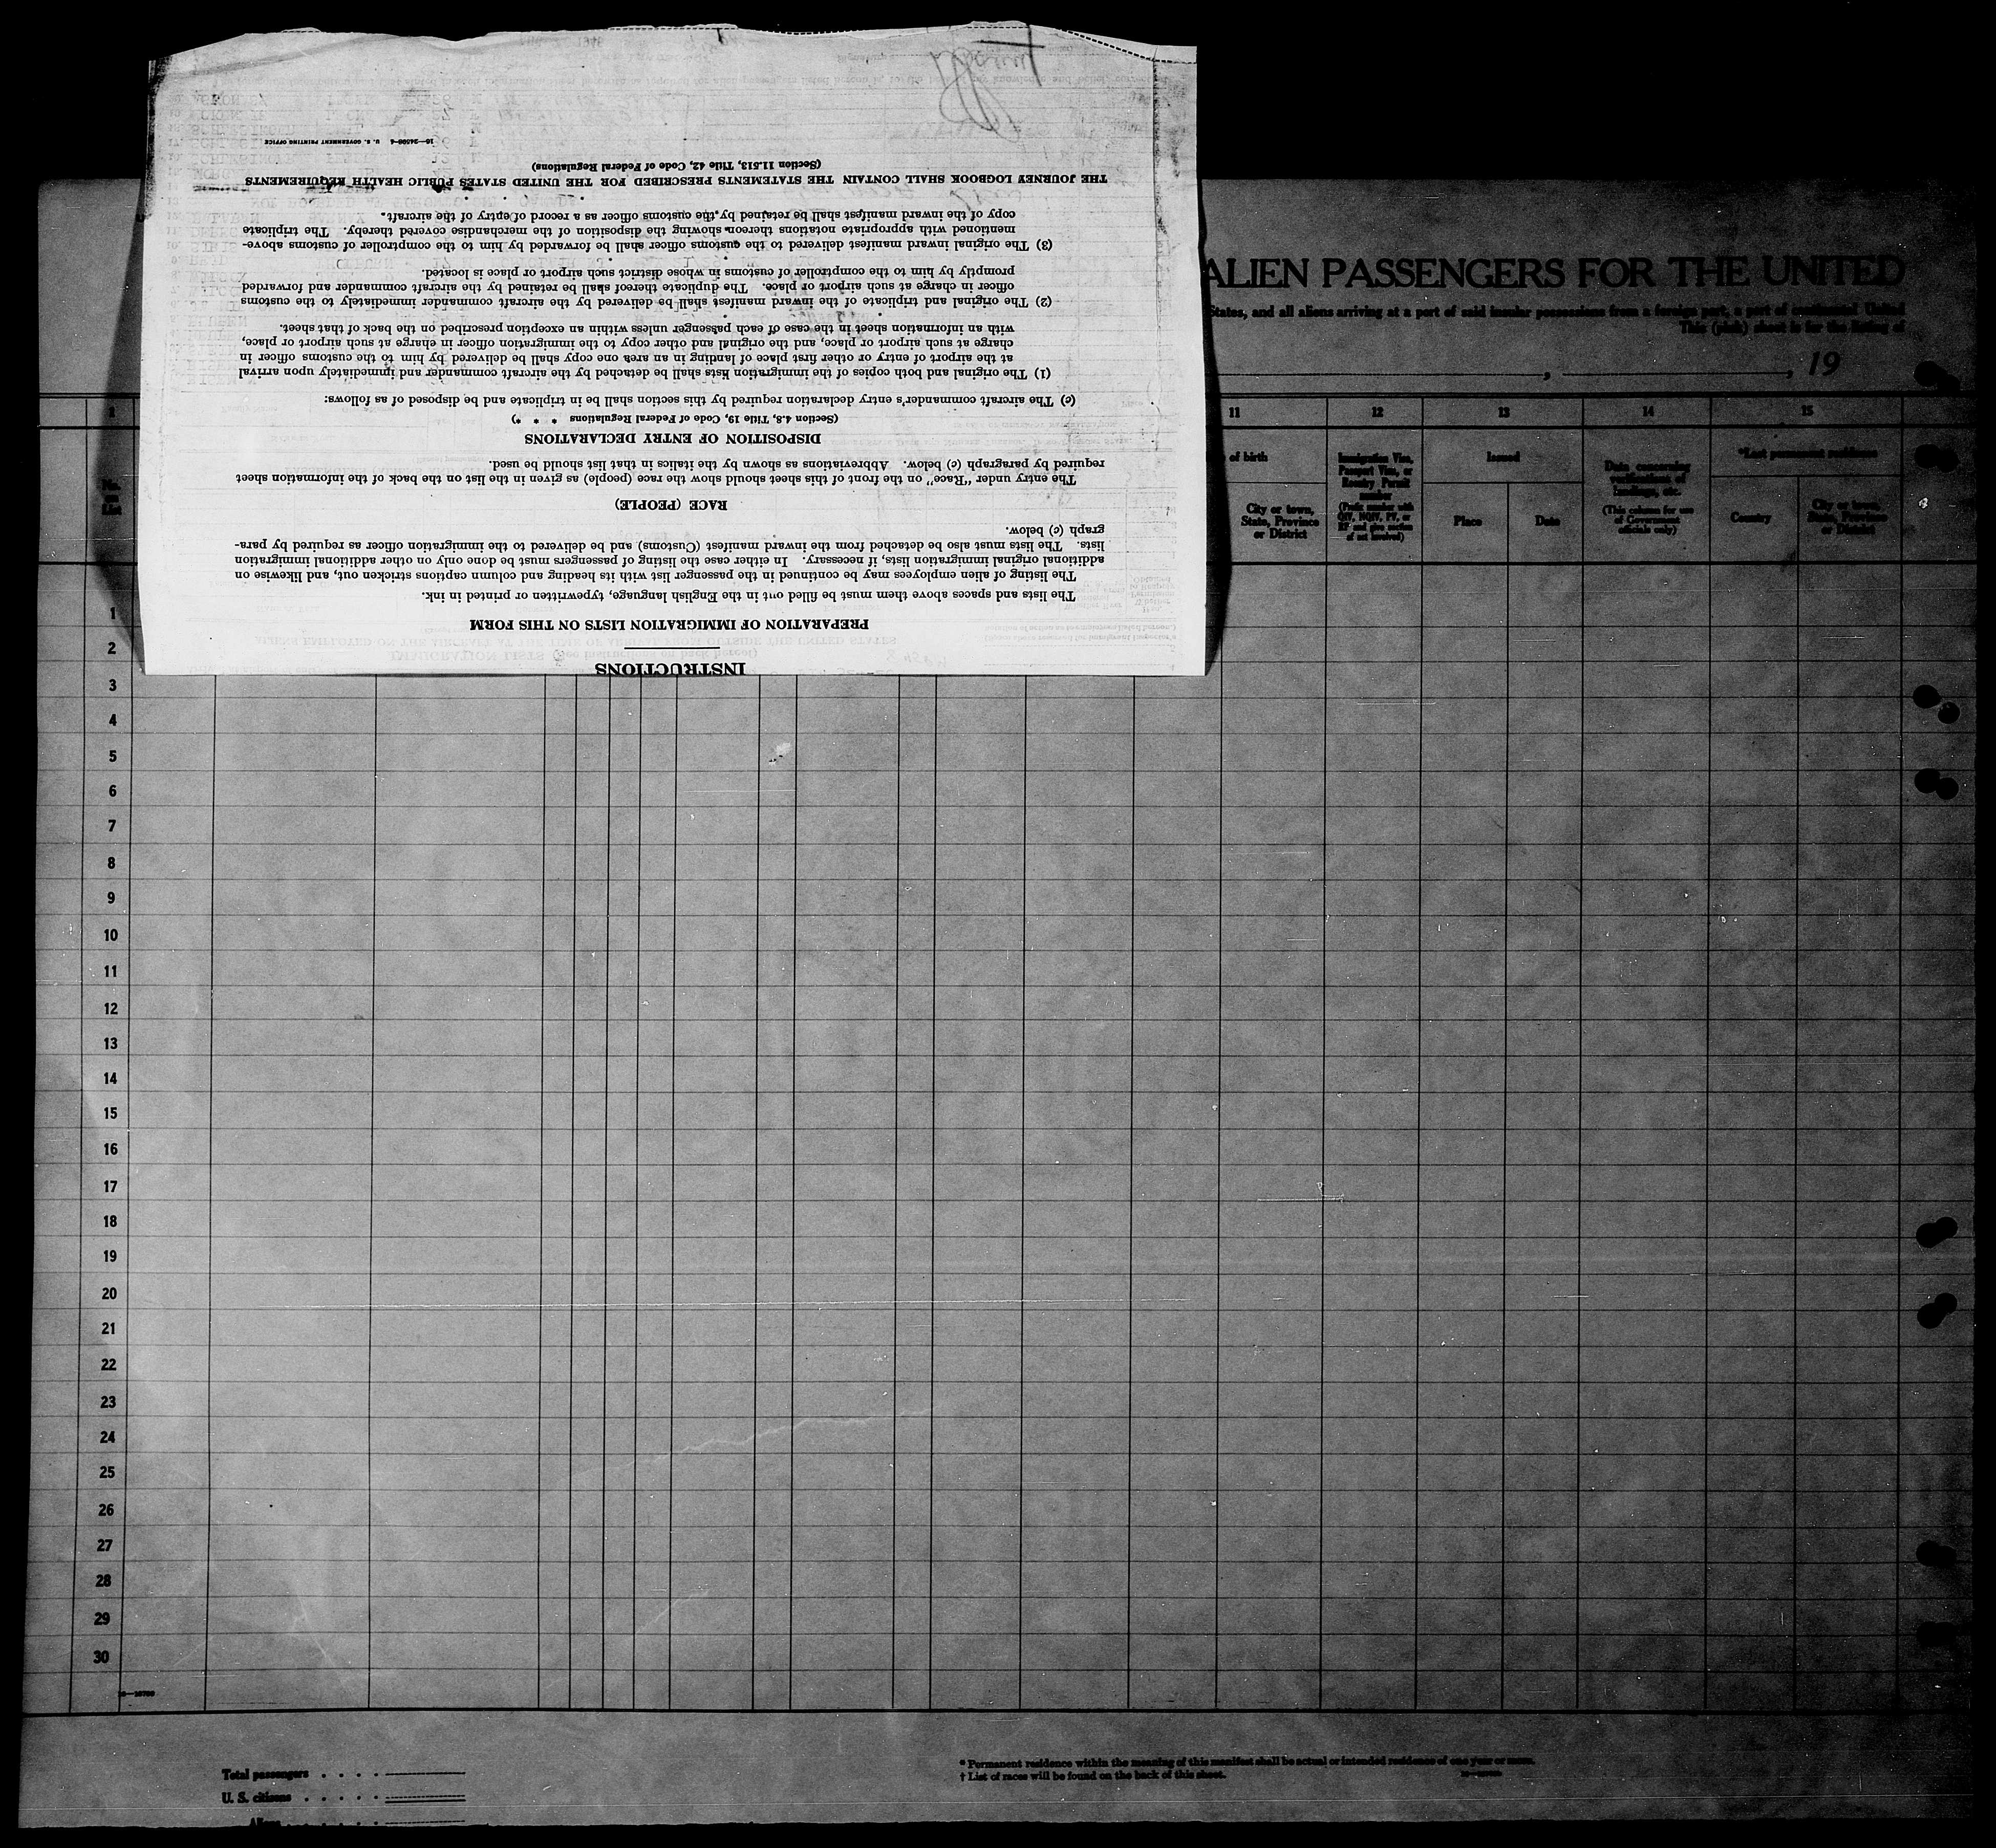 INSTRUCTIONS
PREPARATION OF IMMIGRATION LISTS ON THIS FORM
The lists and spaces above them must be filled out in the English language, typewritten or printed in ink.
The listing of alien employees may be continued in the passenger list with its heading and column captions stricken out, and likewise on
additional original immigration lists, if necessary. In either case the listing of passengers must be done only on other additional immigration
lists. The lists must also be detached from the inward manifest (Customs) and be delivered to the immigration officer as required by para-
graph (c) below.
RACE (PEOPLE)
The entry under "Race" on the front of this sheet should show the race (people) as given in the list on the back of the information sheet
required by paragraph (c) below. Abbreviations as shown by the italics in that list should be used.
DISPOSITION OF ENTRY DECLARATIONS
(Section 4.8, Title 19, Code of Federal Regulations * * *)
(c) The aircraft commander's entry declaration required by this section shall be in triplicate and be disposed of as follows:
(1) The original and both copies of the immigration lists shall be detached by the aircraft commander and immediately upon arrival
at the airport of entry or other first place of landing in an area one copy shall be delivered by him to the customs officer in
charge at such airport or place, and the original and other copy to the immigration officer in charge at such airport or place,
with an information sheet in the case of each passenger unless within an exception prescribed on the back of that sheet.
(2) The original and triplicate of the inward manifest shall be delivered by the aircraft commander immediately to the customs
officer in charge at such airport or place. The duplicate thereof shall be retained by the aircraft commander and forwarded
promptly by him to the comptroller of customs in whose district such airport or place is located.
(3) The original inward manifest delivered to the customs officer shall be forwarded by him to the comptroller of customs above-
mentioned with appropriate notations thereon showing the disposition of the merchandise covered thereby. The triplicate
copy of the inward manifest shall be retained by the customs officer as a record of entry of the aircraft.
THE JOURNEY LOGBOOK SHALL CONTAIN THE STATEMENTS PRESCRIBED FOR THE UNITED STATES PUBLIC HEALTH REQUIREMENTS
(Section 11.513, Title 42, Code of Federal Regulations)
16—24508-4 U. S. GOVERNMENT PRINTING OFFICE
ALIEN PASSENGERS FOR THE UNITED
States, and all aliens arriving at a port of said insular possessions from a foreign port, a port of continental United
This (pink) sheet is for the listing of
, , 19
1 11 12 13 14 15
No. on List
of birth
City or town, State, Province or District
Immigration Visa, Passport Visa, or Reentry Permit number
(Prefix number with QIV, NQIV, PV, or RP and give section of act involved)
Issued
Place
Date
Data concerning verifications of landings, etc.
(This column for use of Government officials only)
*Last permanent residence
Country
City or town, State, Province or District
1
2
3
4
5
6
7
8
9
10
11
12
13
14
15
16
17
18
19
20
21
22
23
24
25
26
27
28
29
30
Total passengers . . . .
U. S. citizens . . . . .
Aliens
* Permanent residence within the meaning of this manifest shall be actual or intended residence of one year or more.
† List of races will be found on the back of this sheet.